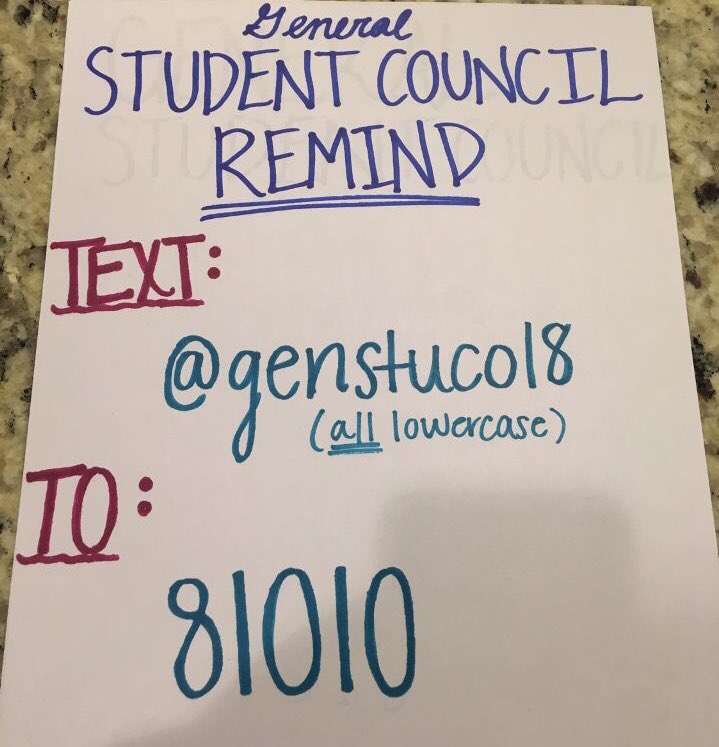 General
STUDENT COUNCIL
REMIND
TEXT:
@genstuco18
(all lowercase)
TO:
81010